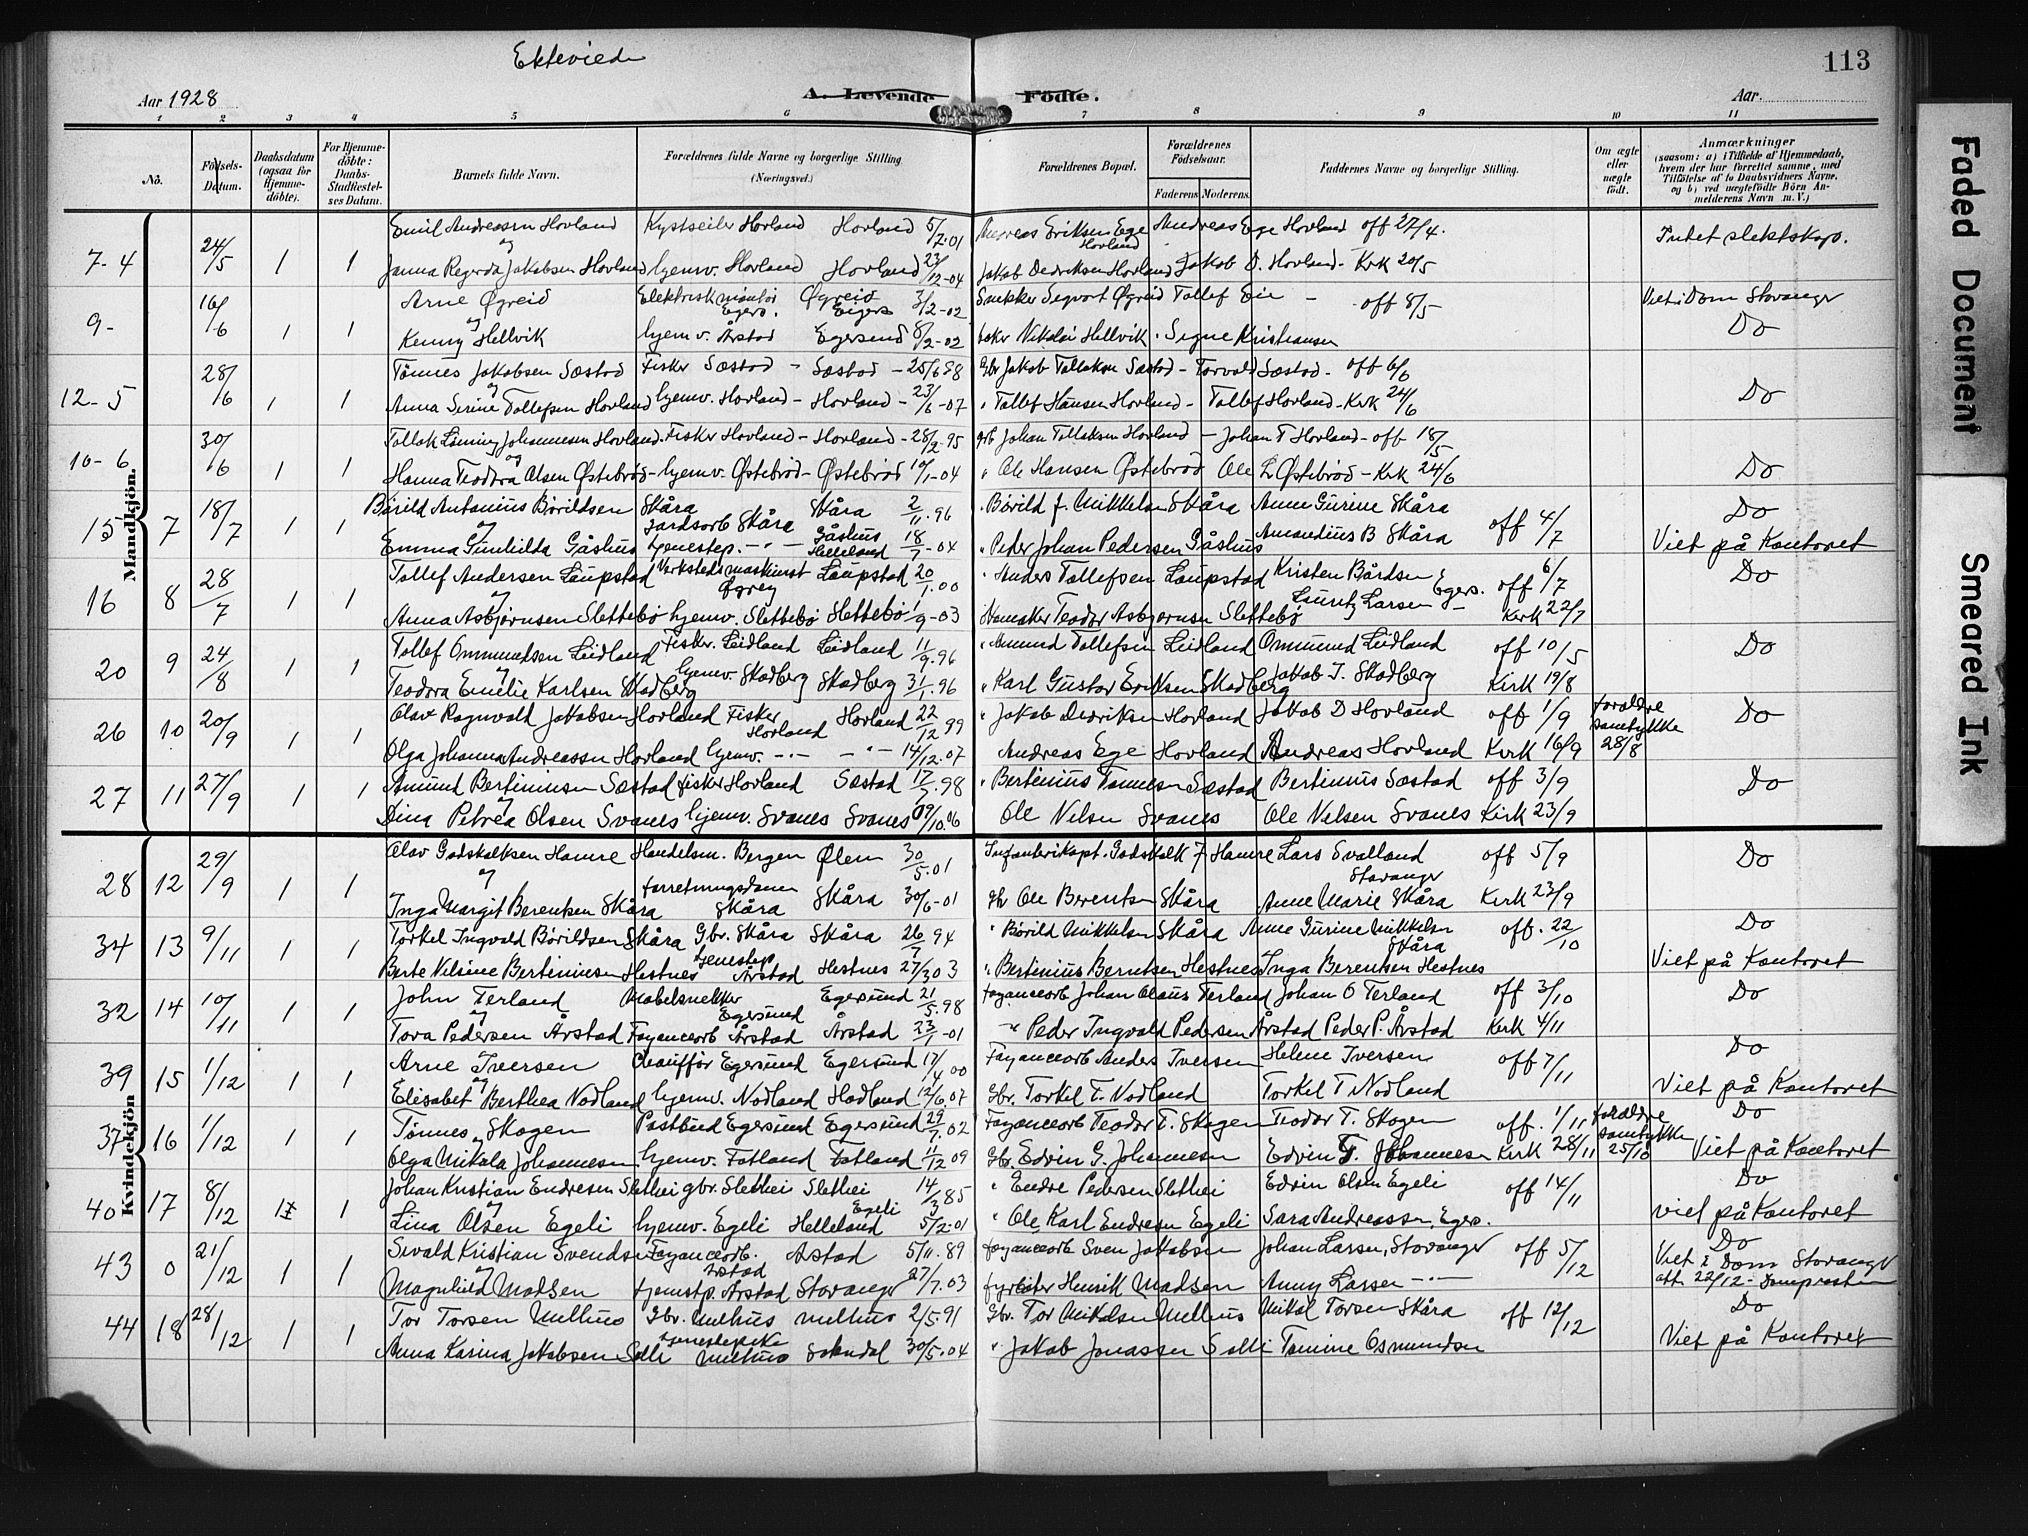 Ektevied
113
Aar 1928
A. Levende Födte.
Aar.
1 2 3 4 5 6 7 8 9 10 11
No.
Födsels-Datum.
Daabsdatum (ogsaa for Hjemme-döbte).
For Hjemme-döbte: Daabs-Stadfæstel-ses Datum.
Barnets fulde Navn.
Forældrenes fulde Navne og borgerlige Stilling (Næringsvei.)
Forældrenes Bopæl.
Forældrenes Födselsaar.
Faderens Moderens
Faddernes Navne og borgerlige Stilling.
Om ægte eller uægte født.
Anmærkninger
(saasom: a) i Tilfælde af Hjemmedaab, hvem der har forrettet samme, med Tilföielse af to Daabsvidners Navne, og b) ved uægtefödte Börn An-melderens Navn m. V.)
Mandkjön.
Emil Andreassen Hovland Kystseiler Hovland Hovland 5/7-01 Andreas Eriksen Ege Hovland Andreas Ege Hovland off 27/4. Intet slektskap.
7-4 24/5 1 1 og
Janna Regerda Jakobsen Hovland hjemv. Hovland Hovland 23/12-04 Jakob Dedriksen Hovland Jakob D. Hovland - Krk 20/5
Arne Øgreid Elektriskmontør Egers. Øgreid Eigers 3/2-02 Snekker Segvart Øgreid Tollef Eie - off 8/5- Viet i Dom Stavanger
9- 16/6 1 1 og Do
Kenny Hellvik hjemv. Årstad Egersund 8/2-02 Nikolai Hellvik. Signe Kristiansen
Tønnes Jakobsen Sæstad Fisker Sæstad - Sæstad - 25/6 98 Gbr Jakob Tollaksen Sæstad - Torvald Sæstad - off 6/6
12-5 28/6 1 1 og Do
Anna Serine Tollefsen Hovland hjemv. Hovland - Hovland - 23/6-07 " Tollef Hansen Hovland - Tollef Hovland - Krk 24/6
Tollak Løining Johannesen Hovland. Fisker Hovland - Hovland - 28/2-95 grb Johan Tollaksen Hovland - Johan T Hovland - off 18/5
10-6 30/6 1 1 og Do
Hanna Teodora Olsen Østebrød - hjemv. Østebrød - Østebrød 10/1-04 " Ole Hansen Østebrød Ole Østebrød - Krk 24/6
Bårild Antonius Børildsen Skåra jordsarb Skåra Skåra 2/11.96 " Børild f. Mikkelsen Skåra Anne Gurine Skåra Do
15 7 18/7 1 1 og off 4/7
Emma Gunhilda Gåshus tjenestep. -"- Gåshus Helleland 18/7-04 " Peder Johan Pedersen Gåshus Amandius B Skåra Viet på Kontoret
Tollef Andersen Laupstad Verkstedsmaskinist Laupstad 20/1.00 " Anders Tollefsen Laupstad Kristen Bårdsen Egers. off 6/7 Do
16 8 28/7 1 1 og
Anna Asbjørnsen Slettebø hjemv. Slettebø Slettebø 1/9-03 Teodor Asbjørnsen Slettebø Lauritz Larsen - Kirk 22/7
Tollef Ommundsen Leidland Fisker. Leidland Leidland 11/9.96 " Amund Tollefsen Leidland Ommund Leidland off 10/5 Do
20 9 24/8 1 1 og
Teodora Emelie Karlsen Skadberg hjemv. Skadberg Skadberg 31/1.96 " Karl Gustav Eriksen Skadberg Jakob J. Skadberg Kirk 19/8
Olav Ragnvald Jakobsen Hovland Fisker Hovland Hovland 22/12 99 " Jakob Dedriksen Hovland Jakob D Hovland off 1/9 foreldre samtykke 28/8 Do
26 10 20/9 1 1
Olga Johanna Andreassen Hovland hjemv. -"- -"- 14/12.07 Andreas Ege Hovland Andreas Hovland Kirk 16/9
Amund Bertiniusen Sæstad Fisker Hovland Sæstad 17/5.98 " Bertinius Tønnesen Sæstad Bertinius Sæstad off 3/9 Do
27 11 27/9 1 1 og
Dina Petrea Olsen Svanes hjemv. Svanes Svanes 09/10.06 Ole Nelsen Svanes Ole Nelsen Svanes Kirk 23/9
Kvindekjön
Olav Godskalksen Hamre Handelsm. Bergen Ølen 30/5.01 Infanterikapt. Godskalk F Hamre Lars Svalland Stavanger off 5/9 Do
28 12 29/9 1 1 og
Inga Margit Berentsen Skåra forretningsdame Skåra Skåra 30/6-01 Gbr Ole Berentsen Skåra Anne Marie Skåra Kirk 23/9
Torkel Ingvald Børildsen Skåra Gbr. Skåra Skåra 26/7 94 " Børild Mikkelsen Skåra Anne Gurine Mikkelsen Skåra off. 22/10 Do
34 13 9/11 1 1
Berte Nelsine Bertiniusen Hestnes tjenestep Årstad Hestnes 27/3 03 " Bertinius Berntsen Hestnes Inga Berentsen Hestnes Viet på Kontoret
John Terland Møbelsnekker Egersund Egersund 21/5.98 Fayancearb Johan Olaus Terland Johan O Terland off 3/10 Do
32 14 10/11 1 1 og
Tora Pedersen Årstad Fayancearb Årstad Årstad 23/1-01 -"- Peder Ingvald Pedersen Årstad Peder P. Årstad Kirk 4/11
Arne Iversen Chauffør Egersund Egersund 17/4 00 Fayancearb Anders Iversen Helene Iversen off 7/11 Do
39 15 1/12 1 1 og
Elisabet Berthea Nodland hjemv. Nodland Nodland 12/6.07 Gbr. Torkel T. Nodland Torkel T Nodland Viet på Kontoret
Tønnes Skogen Postbud Egersund Egersund 29/7.02 Fayancearb Teodor T. Skogen Teodor T. Skogen off. 1/11 foreldre samtykke 25/10 Do
37 16 1/12 1 1 og
Olga Mikala Johannesen hjemv. Fotland Fotland 11/12 09 Gbr. Edvin G. Johannesen Edvin G. Johannesen Kirk 28/11 Viet på Kontoret
Johan Kristian Endresen Slethei gbr. Slethei Slethei 14/3 85 " Endre Pedersen Slethei Edvin Olsen Egeli off 14/11 Do
40 17 8/12 1 1 og
Lina Olsen Egeli hjemv. Egeli Egeli Helleland 5/2.01 " Ole Karl Endresen Egeli Sara Andreassen, Egers. viet på Kontoret
Sivald Kristian Svendsen Fayancearb. Årstad Årstad 5/11.89 fayancearb Sven Jakobsen Johan Larsen, Stavanger off 5/12 Do
43 0 21/12 1 1 og Viet i Dom Stavanger
Magnhild Madsen tjenestp. Årstad Stavanger 27/7.03 fyrbøter Henrik Madsen Anny Larsen -"- att. 22/12 - Domprosten
Tor Torsen Melhus Gbr. Melhus Melhus 2/5.91 Gbr. Tor Mikalsen Melhus Mikal Torsen Skåra off 12/12 Do
44 18 28/12 1 1
Anna Karina Jakobsen Solli tjenestepike Melhus Sokndal 30/5.04 " Jakob Jonassen Solli Tomine Osmundsen Viet på Kontoret
Faded Document
Smeared Ink